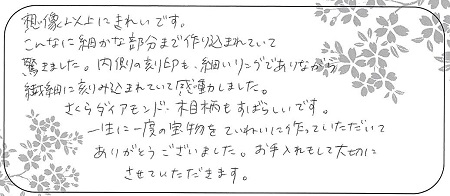 想像以上にきれいです。
こんなに細かな部分まで作り込まれていて
驚きました。内側の刻印も、細いリングでありながら
繊細に刻み込まれていて感動しました。
さくらダイアモンド、木目柄もすばらしいです。
一生に一度の宝物をていねいに作っていただいて
ありがとうございました。お手入れもして大切に
させていただきます。